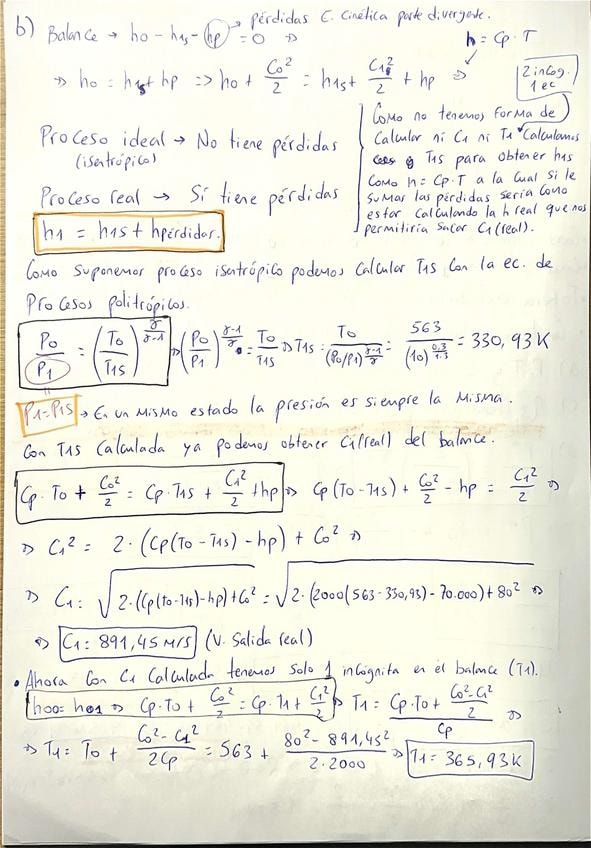 b) Balance → h0 - h1s - hp = 0 ⇒
→ pérdidas E. Cinética parte divergente.
h = Cp · T
⇒ h0 = h1s + hp ⇒ h0 + C0²/2 = h1s + C1²/2 + hp ⇒
2 incog.
1 ec
Proceso ideal → No tiene pérdidas
(isentrópico)
Proceso real → Sí tiene pérdidas
h1 = h1s + hpérdidas.
Como no tenemos forma de
Calcular ni C1 ni T1 Calculamos
T1s para obtener h1s
Como h = Cp·T a la cual si le
sumas las pérdidas sería como
estar calculando la h real que nos
permitiría sacar C1(real).
Como suponemos proceso isentrópico podemos calcular T1s con la ec. de
Procesos politrópicos.
P0/P1 = (T0/T1s)^(γ/(γ-1)) ⇒ (P0/P1)^((γ-1)/γ) = T0/T1s ⇒ T1s = T0/(P0/P1)^((γ-1)/γ) = 563/(10)^(0,3/1.3) = 330,93 K
P1=P1s → En un mismo estado la presión es siempre la misma.
Con T1s calculada ya podemos obtener C1(real) del balance.
Cp · T0 + C0²/2 = Cp · T1s + C1²/2 + hp ⇒ Cp (T0 - T1s) + C0²/2 - hp = C1²/2 ⇒
⇒ C1² = 2 · (Cp(T0 - T1s) - hp) + C0² ⇒
⇒ C1 = √(2·(Cp(T0-T1s)-hp)+C0²) = √(2·(2000(563-330,93)-70.000)+80²) ⇒
⇒ C1 = 891,45 m/s (V. Salida real)
• Ahora con C1 calculada tenemos solo 1 incógnita en el balance (T1).
h00 = h01 ⇒ Cp·T0 + C0²/2 = Cp·T1 + C1²/2 ⇒ T1 = (Cp·T0 + (C0²-C1²)/2)/Cp ⇒
⇒ T1 = T0 + (C0² - C1²)/2Cp = 563 + (80² - 891,45²)/(2·2000) ⇒ T1 = 365,93 K